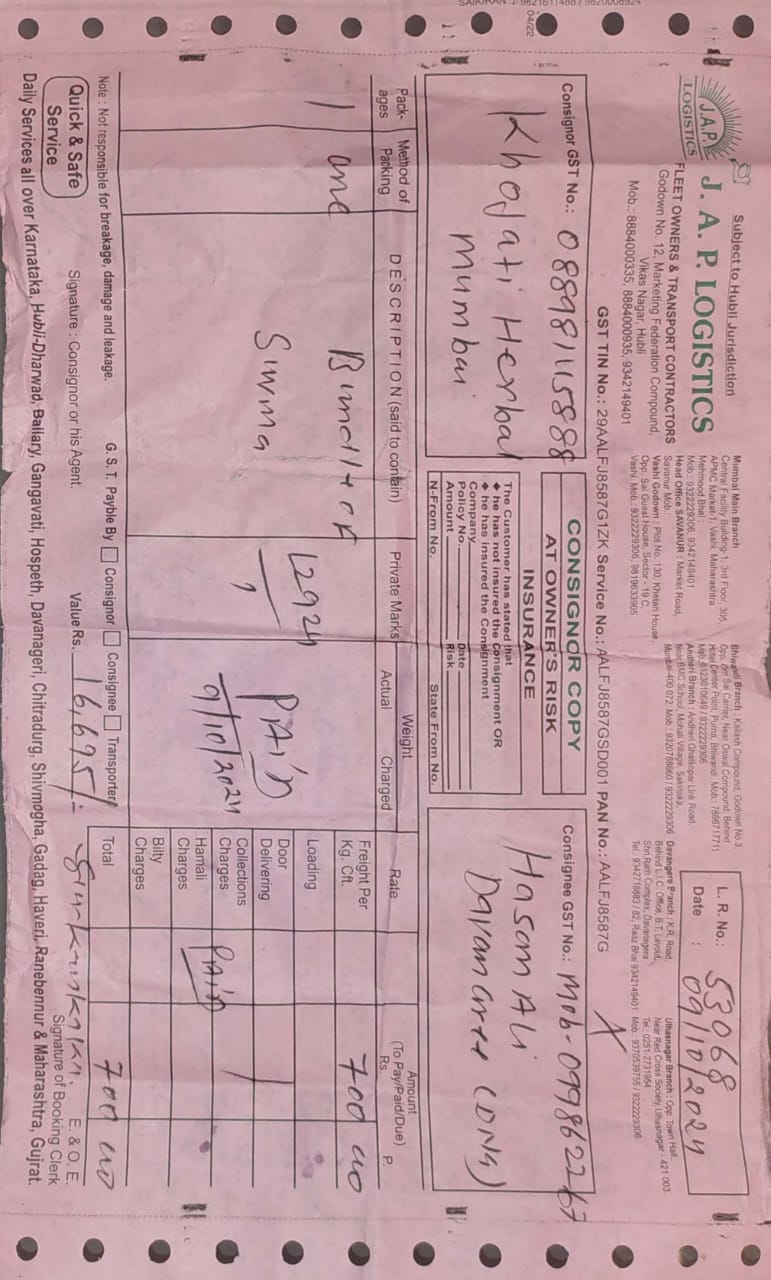 SAIKIRAN J 9821611488 / 9820008924
04/22
Subject to Hubli Jurisdiction
J.A.P.
LOGISTICS
J. A. P. LOGISTICS
FLEET OWNERS & TRANSPORT CONTRACTORS
Godown No. 12, Marketing Federation Compound,
Vikas Nagar, Hubli
Mob.: 8884000335, 8884000935, 9342149401
Mumbai Main Branch
Central Facility Building-1, 3rd Floor, 305,
APMC Market-1, Vashi, Maharashtra
Mehmood Bhai
Mob.: 9322229306, 9342149401
Head Office SAVANUR : Market Road,
Savanur Mob.:
Vashi Godown : Plot No. 130, Khetan House,
Opp. Sai Guest House, Sector - 19 C,
Vashi. Mob.: 9322229306, 9819633905
Bhiwandi Branch : Kailash Compound, Godown No 3,
Opp. Om Sai Carrier, Near Oswal Compound, Behind
Hotel Center Point, Purna, Bhiwandi. Mob.: 7666717711
Mob.: 8123010649 / 9322229306
Andheri Branch : Andheri Ghatkopar Link Road,
Near BMC School, Mohali Village, Sakinaka,
Mumbai-400 072. Mob.: 9320788660 / 9322229306
Davangere Branch : K.R. Road,
Behind L.I.C. Office, B.T. Layout,
Shri Ram Complex, Davanagere
Tel.: 9342718883 / 82, Raaz Bhai 9342149401
Ulhasnagar Branch : Opp. Town Hall,
Near Red Cross Society, Ulhasnagar - 421 003.
Tel.: 0251-2731954
Mob.: 9370539755 / 9322229306
L. R. No.: 53068
Date : 09/10/2024
GST TIN No.: 29AALFJ8587G1ZK Service No.: AALFJ8587GSD001 PAN No.: AALFJ8587G
Consignor GST No.: 08898115888
Khojati Herbal
Mumbai
CONSIGNOR COPY
AT OWNER'S RISK
INSURANCE
The Customer has stated that
◆ he has not insured the Consignment OR
◆ he has insured the Consignment
Company
Policy No. Date
Amount Risk
N-From No. State From No.
Consignee GST No.: Mob-0998622767
Hasam Ali
Davangree (DNG)
Pack-ages
Method of Packing
DESCRIPTION (said to contain)
Private Marks
Weight
Actual Charged
Rate
Amount
(To Pay/Paid/Due)
Rs. P.
1 one
Surma
12924
1
PAID
9/10/2024
Freight Per Kg. Cft. 700 00
Loading
Door Delivering
Collections Charges
Hamali Charges PAID
Bilty Charges
Total 700 00
Note : Not responsible for breakage, damage and leakage.
G. S. T. Payble By Consignor Consignee Transporter
Quick & Safe Service
Signature : Consignor or his Agent.
Value Rs. 16,695/-
E. & O. E.
Signature of Booking Clerk
Daily Services all over Karnataka, Hubli-Dharwad, Ballary, Gangavati, Hospeth, Davanageri, Chitradurg, Shivmogha, Gadag, Haveri, Ranebennur & Maharashtra, Gujrat.